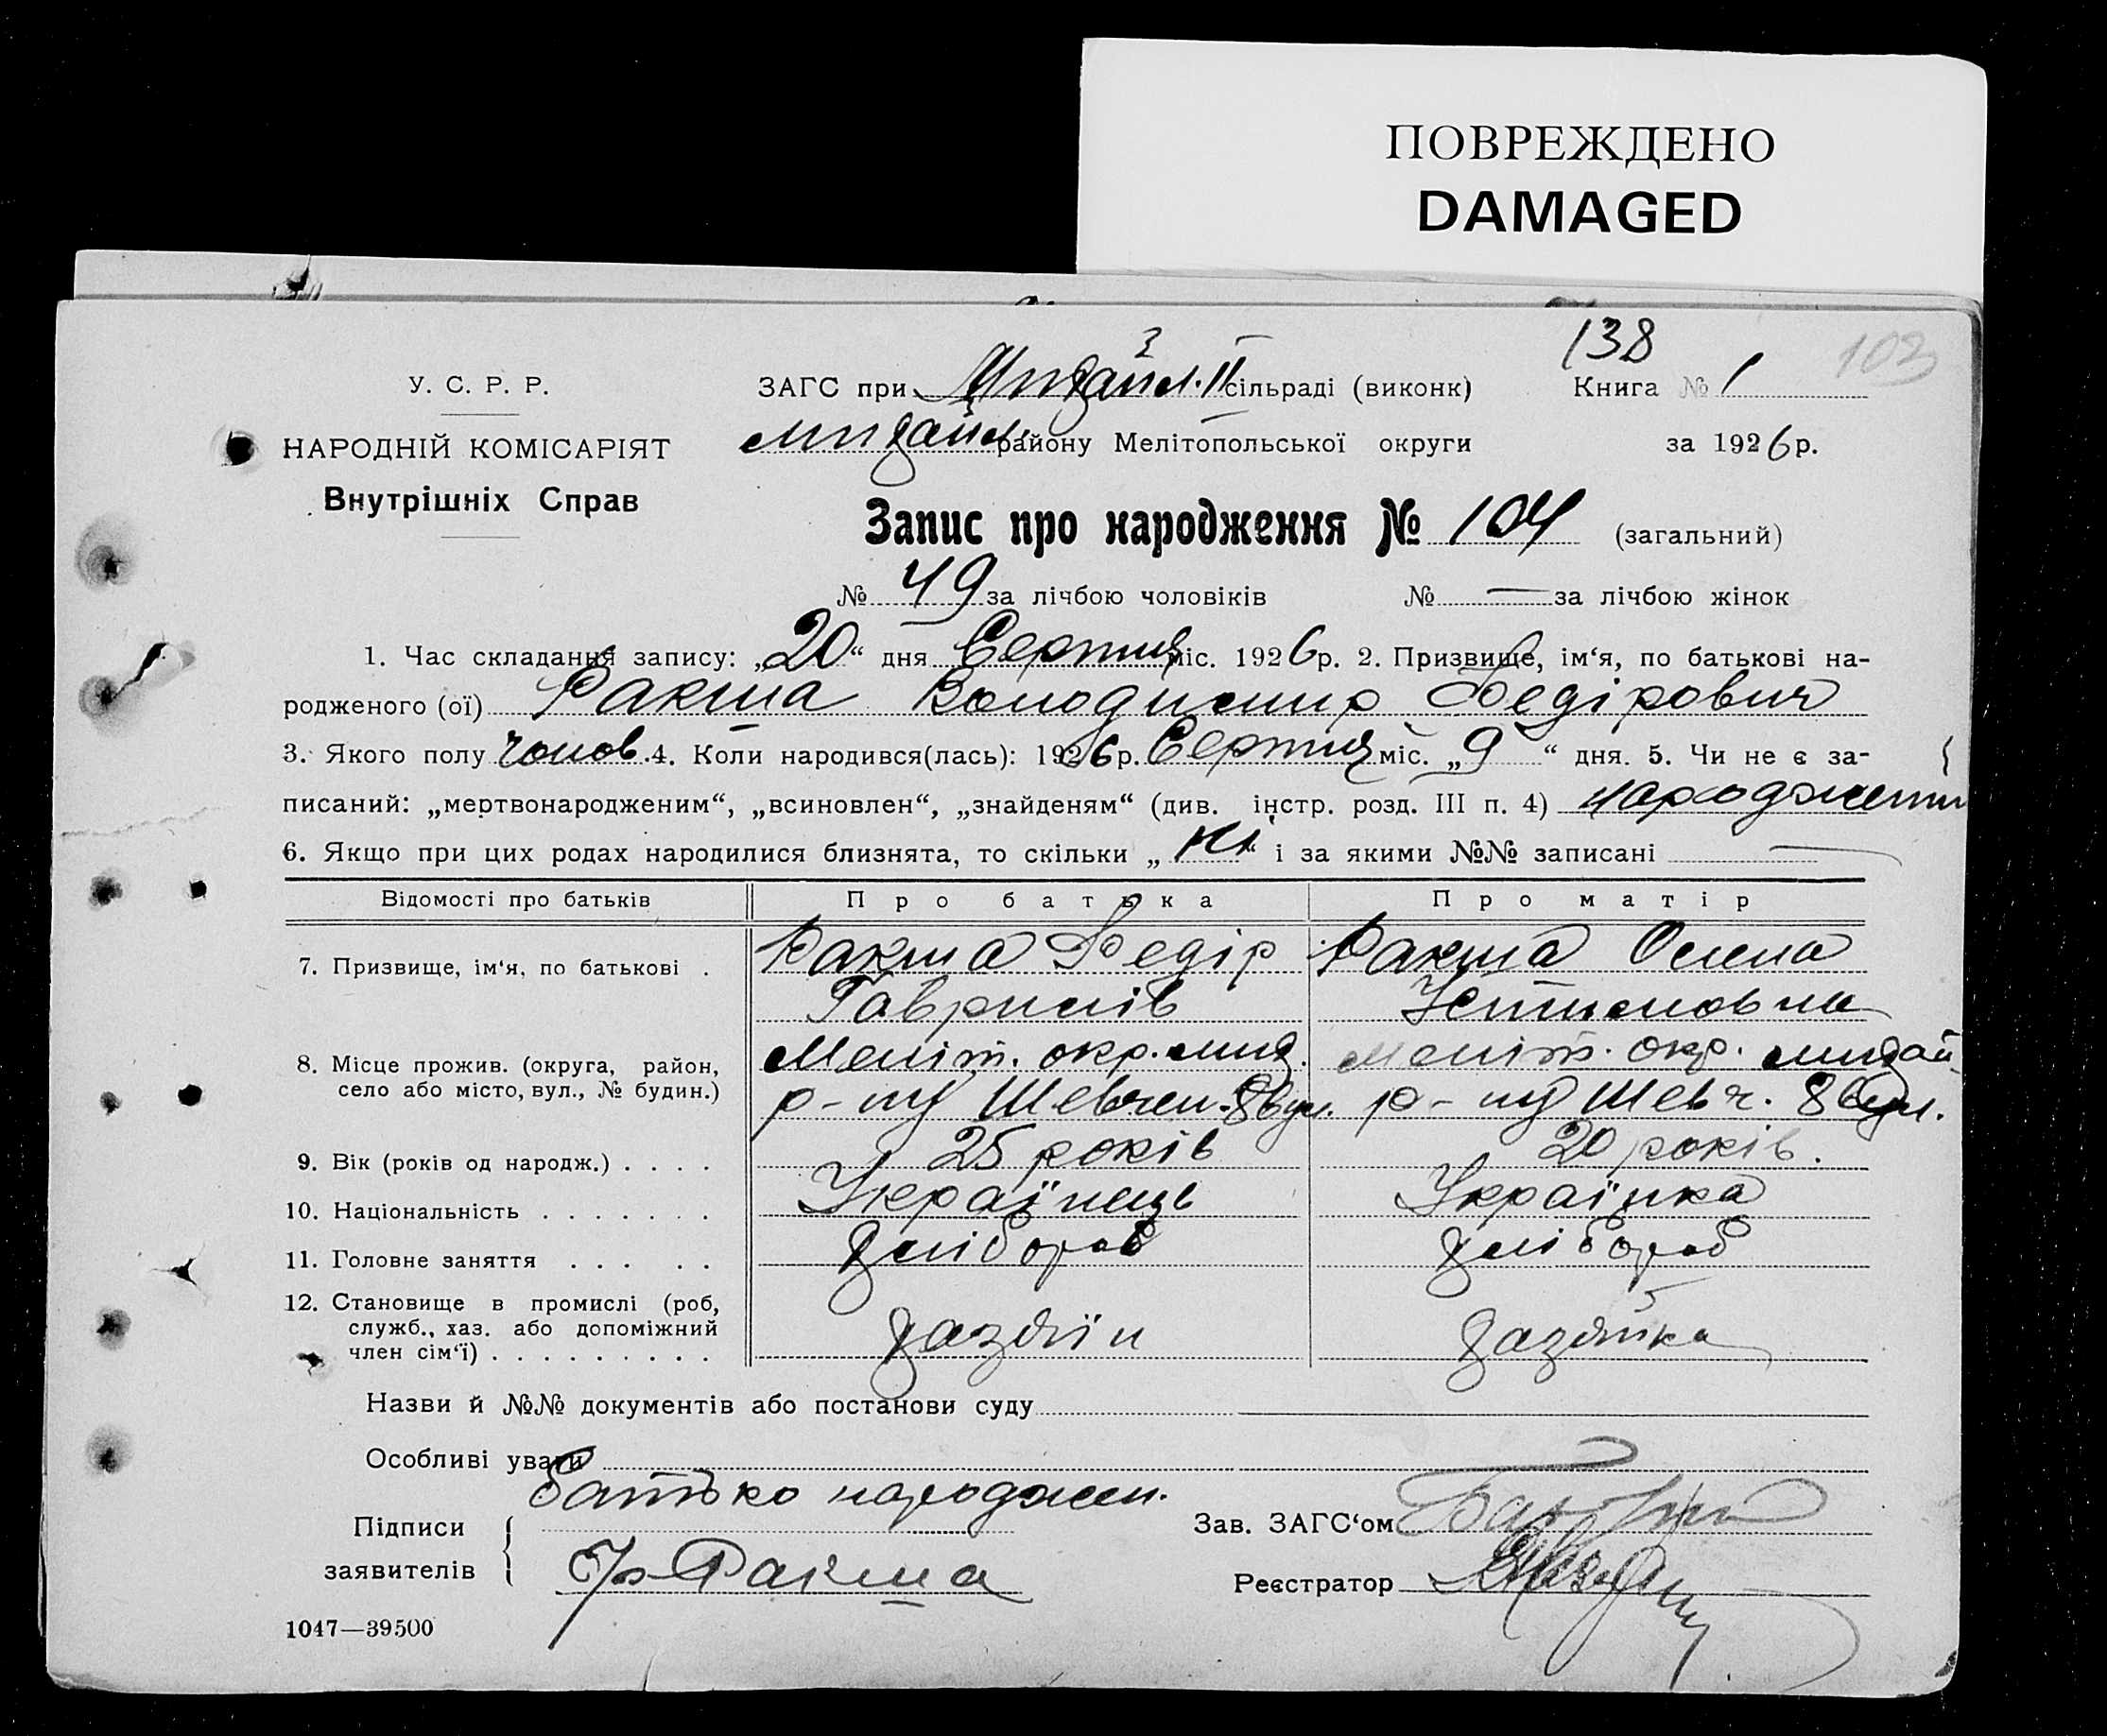 ПОВРЕЖДЕНО
DAMAGED
138
103
У. С. Р. Р.
НАРОДНІЙ КОМІСАРІЯТ
Внутрішніх Справ
ЗАГС при Михайл. II сільраді (виконк)
Книга № 1
михайл. району Мелітопольської округи
за 1926 р.
Запис про народження № 104 (загальний)
№ 49 за лічбою чоловіків № — за лічбою жінок
1. Час складання запису: „20“ дня Серпня міс. 1926 р. 2. Призвище, ім‘я, по батькові на-
родженого (ої) Ракша Володимир Федірович
3. Якого полу чолов. 4. Коли народився(лась): 1926 р. Серпня міс. „9“ дня. 5. Чи не є за-
писаний: „мертвонародженим“, „всиновлен“, „знайденям“ (див. інстр. розд. III п. 4) народжений
6. Якщо при цих родах народилися близнята, то скільки „ “ і за якими №№ записані —
Відомості про батьків Про батька Про матір
7. Призвище, ім‘я, по батькові . Ракша Федір Ракша Олена
Гаврилів Устимовна
8. Місце прожив. (округа, район, Меліт. окр. мих. Меліт. окр. михай.
село або місто, вул., № будин.) р-ну Шевчен. 8 вул. р-ну Шевч. 8 вул.
9. Вік (років од народж.) . . . . 25 років 20 років.
10. Національність . . . . . . . Українець Українка
11. Головне заняття . . . . . хлібороб хлібороб
12. Становище в промислі (роб,
служб., хаз. або допоміжний
член сім‘ї) . . . . . . . . . хазяїн хазяйка
Назви й №№ документів або постанови суду
Особливі уваги
Батько народжен.
Підписи
заявителів
Гр Ракша
Зав. ЗАГС‘ом
Реєстратор
1047—39500